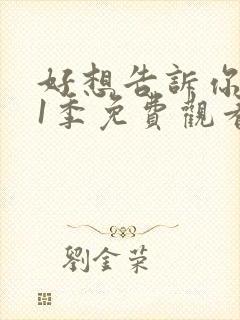 好想告訴你
1季免費觀看
劉金荣